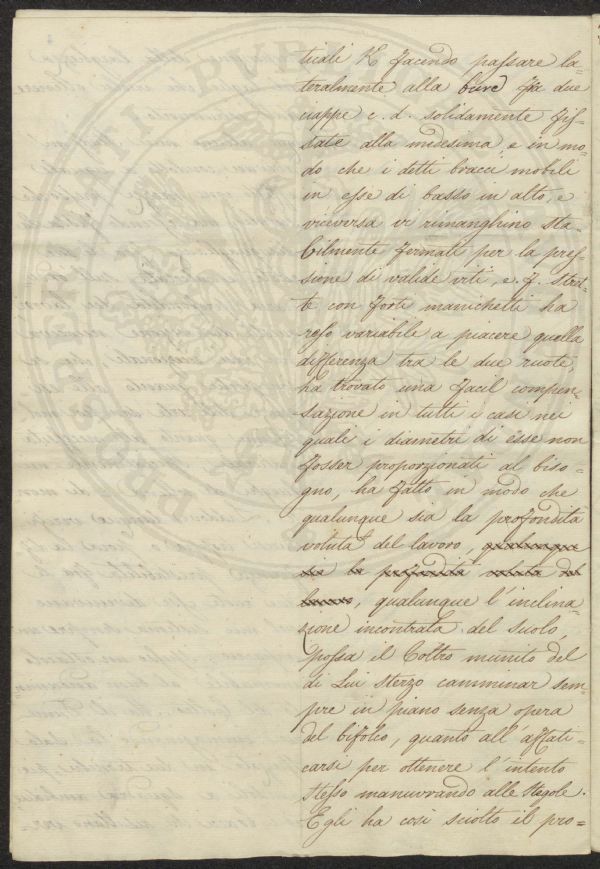 ticali K facendo passare la=
teralmente alla bure fra due
ciappe c. d. solidamente fis=
sate alla medesima, e in mo=
do che i detti bracci mobili
in esse di basso in alto, e
viceversa vi rimanghino sta=
bilmente fermati per la pres=
sione di valide viti, e. f. stret=
te con forti manichetti ha
reso variabile a piacere quella
differenza tra le due ruote,
ha trovato una facil compen=
sazione in tutti i casi nei
quali i diametri di esse non
fosser proporzionati al biso=
gno, ha fatto in modo che
qualunque sia la profondità
voluta del lavoro, qualunque
sia la profondità voluta del
lavoro, qualunque l'inclina=
zione incontrata del suolo,
possa il Coltro munito del
di Lui sterzo camminar sem=
pre in piano senza opera
del bifolco, quanto all'affati=
carsi per ottenere l'intento
stesso manuvrando alle stegole.
Egli ha così sciolto il pro=